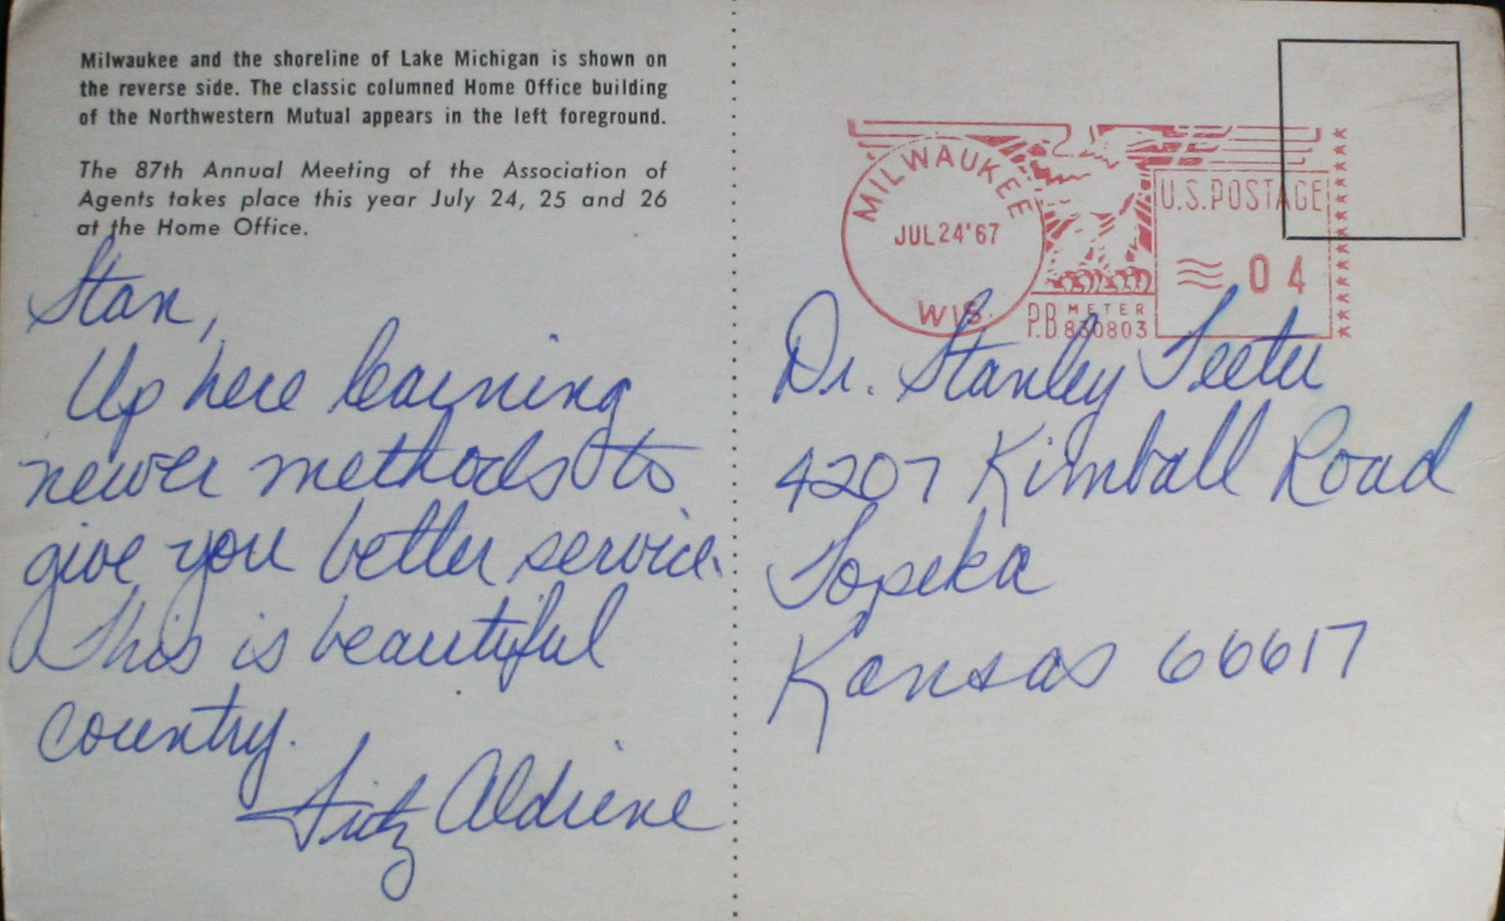 Milwaukee and the shoreline of Lake Michigan is shown on
the reverse side. The classic columned Home Office building
of the Northwestern Mutual appears in the left foreground.
The 87th Annual Meeting of the Association of
Agents takes place this year July 24, 25 and 26
at the Home Office.
Stan,
Up here learning
newer methods to
give you better service.
This is beautiful
country.
Fritz Aldriene
MILWAUKEE
JUL 24 '67
WIS.
P.B. METER
830803
U.S. POSTAGE
04
Dr. Stanley Teeter
4207 Kimball Road
Topeka
Kansas 66617